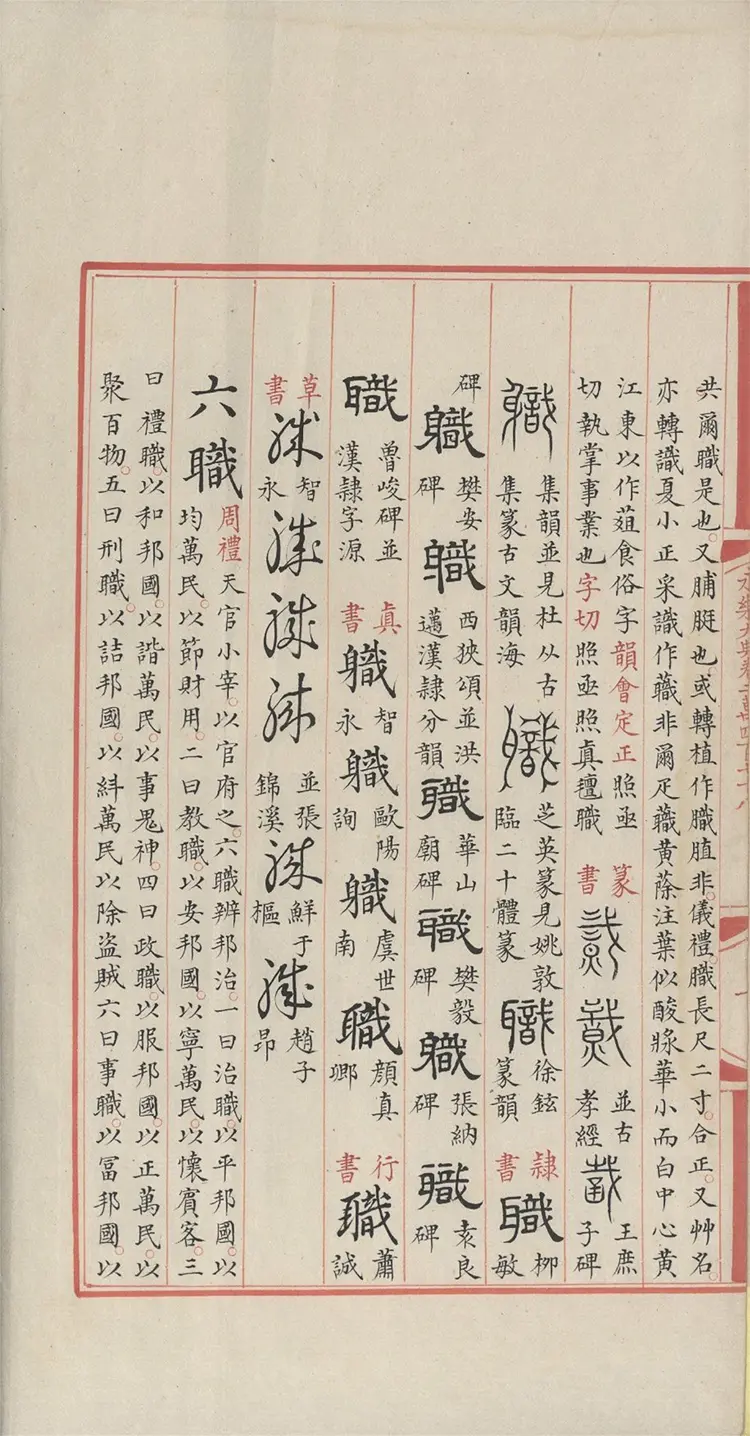 共爾職是也又脯脡也或轉植作膱䐈非儀禮膱長尺二寸合正又艸名
亦轉識夏小正采識作蘵非爾疋蘵黃蒢注葉似酸漿華小而白中心黃
江東以作葅食俗字韻會定正照亟
切執掌事業也字切照亟照真氊職
篆書
並古孝經
王庶子碑
集韻並見杜从古
集篆古文韻海
芝英篆見姚敦
臨二十體篆
徐鉉篆韻
隷書
職
柳敏
碑
職
樊安碑
職
西狹頌並洪
邁漢隷分韻
職
華山廟碑
職
樊毅碑
職
張納碑
職
袁良碑
職
魯峻碑並
漢隷字源
真書
職
智永
職
歐陽詢
職
虞世南
職
顏真卿
行書
職
蕭誠
草書
職
智永
職
職
職
並張錦溪
職
鮮于樞
職
趙子昂
六職
周禮天官小宰以官府之六職辨邦治一曰治職以平邦國以
均萬民以節財用二曰教職以安邦國以寧萬民以懷賓客三
曰禮職以和邦國以諧萬民以事鬼神四曰政職以服邦國以正萬民以
聚百物五曰刑職以詰邦國以糾萬民以除盜賊六曰事職以富邦國以